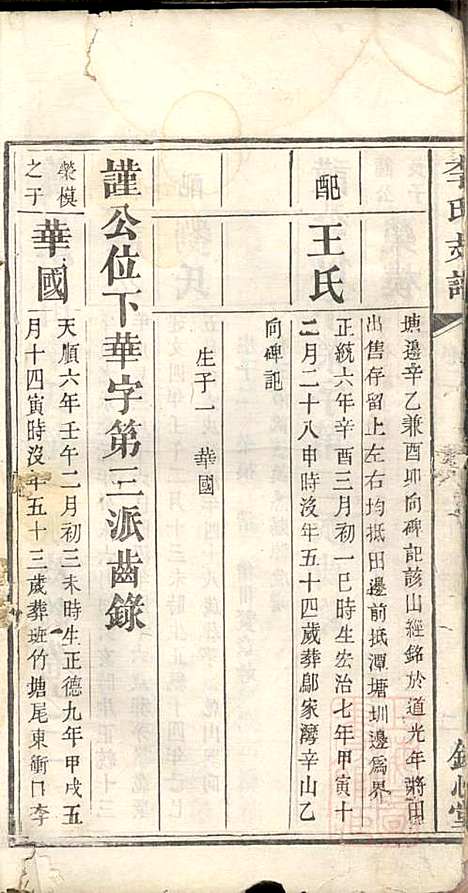 李氏支譜
塘邊辛乙兼酉卯向碑記該山經銘於道光年將田
出售存留上左右均抵田邊前抵潭塘圳邊爲界
配
王氏
正統六年辛酉三月初一巳時生宏治七年甲寅十
二月二十八申時沒年五十四歲葬鄔家灣辛山乙
向碑記
生子一 華國
謹公位下華字第三派齒錄
榮模
之子
華國
天順六年壬午二月初三未時生正德九年甲戌五
月十四寅時沒年五十三歲葬班竹塘尾東衝口李